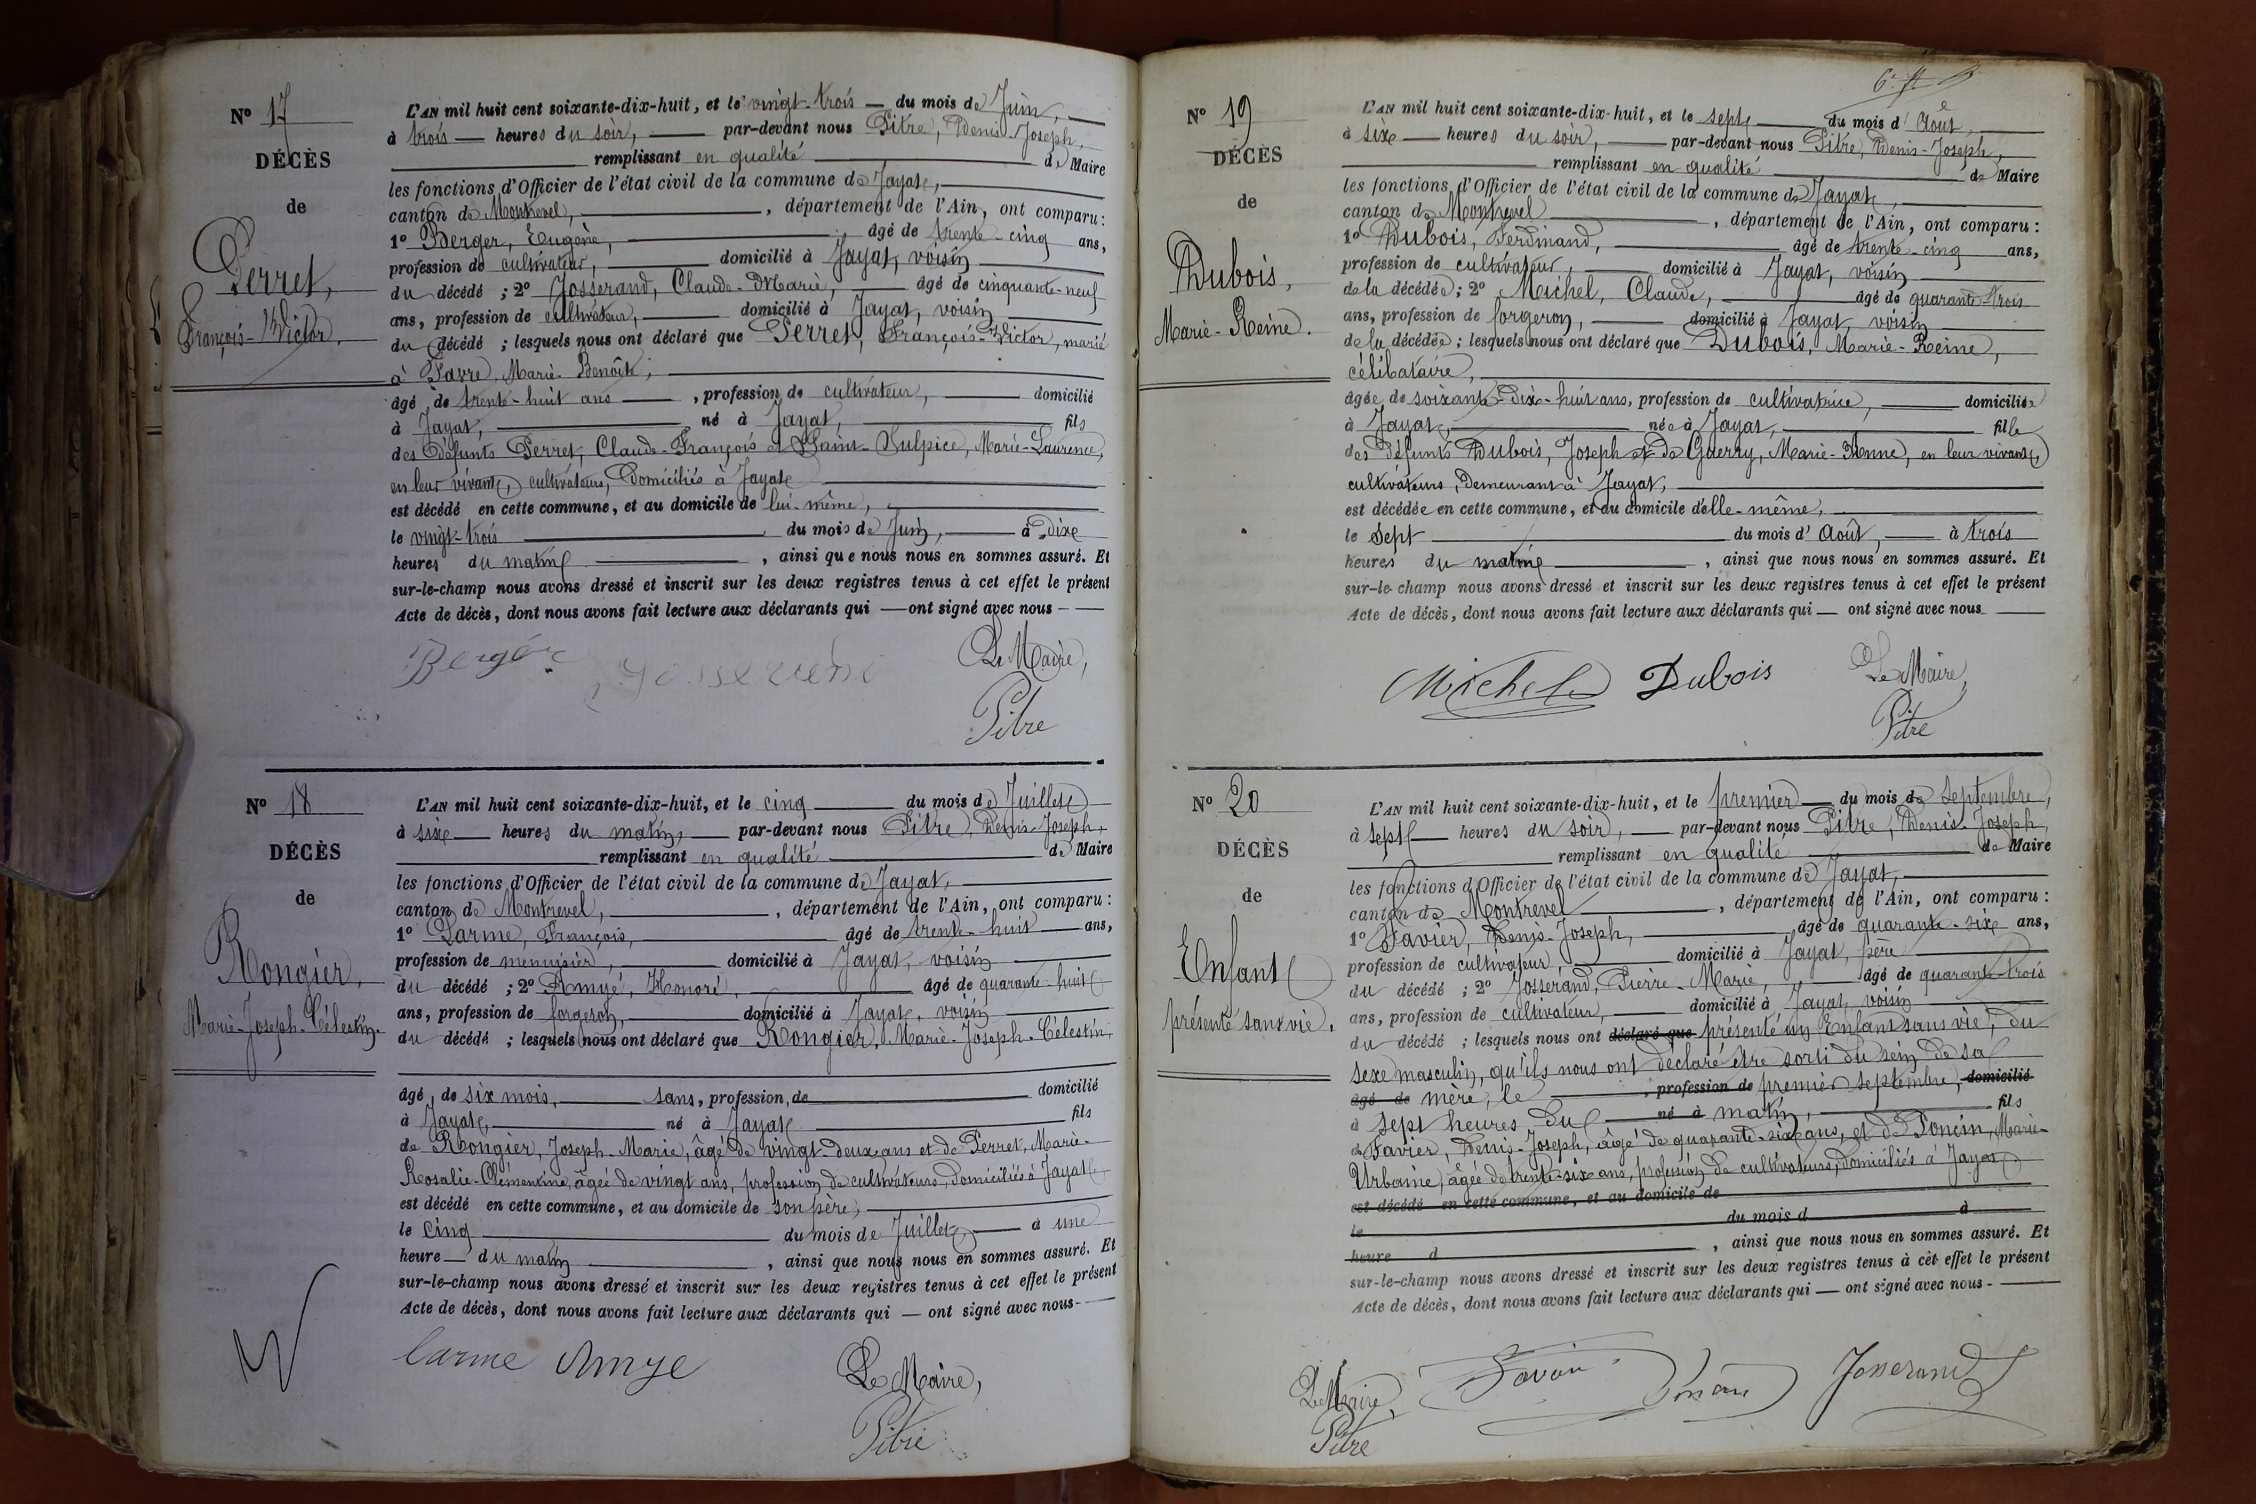 N° 17
DÉCÈS
de
Perret,
François-Victor.
L'AN mil huit cent soixante-dix-huit, et le vingt-trois du mois de Juin,
à trois heures du soir, par-devant nous Pitre, Denis-Joseph,
remplissant en qualité de Maire
les fonctions d'Officier de l'état civil de la commune de Jayat,
canton de Montrevel, , département de l'Ain, ont comparu :
1° Berger, Eugène, âgé de trente-cinq ans,
profession de cultivateur, domicilié à Jayat, voisin
du décédé ; 2° Josserand, Claude-Marie, âgé de cinquante-neuf
ans, profession de cultivateur, domicilié à Jayat, voisin
du décédé ; lesquels nous ont déclaré que Perret, François-Victor, marié
à Favre, Marie-Benoîte,
âgé de trente-huit ans , profession de cultivateur, domicilié
à Jayat, né à Jayat, fils
des défunts Perret, Claude-François et Saint-Sulpice, Marie-Laurence,
en leur vivant, cultivateurs, domiciliés à Jayat
est décédé en cette commune, et au domicile de lui-même,
le vingt-trois du mois de Juin, à dix
heures du matin , ainsi que nous nous en sommes assuré. Et
sur-le-champ nous avons dressé et inscrit sur les deux registres tenus à cet effet le présent
Acte de décès, dont nous avons fait lecture aux déclarants qui — ont signé avec nous -
Berger Josserand Le Maire,
Pitre
N° 18
DÉCÈS
de
Rongier,
Marie-Joseph-Célestin.
L'AN mil huit cent soixante-dix-huit, et le cinq du mois de Juillet
à six heures du matin, par-devant nous Pitre, Denis-Joseph,
remplissant en qualité de Maire
les fonctions d'Officier de l'état civil de la commune de Jayat,
canton de Montrevel, , département de l'Ain, ont comparu :
1° Carme, François, âgé de trente-huit ans,
profession de menuisier, domicilié à Jayat, voisin
du décédé ; 2° Amyé, Honoré, âgé de quarante-huit
ans, profession de forgeron, domicilié à Jayat, voisin
du décédé ; lesquels nous ont déclaré que Rongier, Marie-Joseph-Célestin,
âgé de six mois, sans, profession, de domicilié
à Jayat, né à Jayat fils
de Rongier, Joseph-Marie, âgé de vingt-deux ans et de Perret, Marie-
Rosalie-Clémentine, âgée de vingt ans, profession de cultivateurs, domiciliés à Jayat
est décédé en cette commune, et au domicile de son père,
le cinq du mois de Juillet, à une
heure du matin , ainsi que nous nous en sommes assuré. Et
sur-le-champ nous avons dressé et inscrit sur les deux registres tenus à cet effet le présent
Acte de décès, dont nous avons fait lecture aux déclarants qui — ont signé avec nous -
Carme Amye Le Maire,
Pitre
N° 19
DÉCÈS
de
Dubois,
Marie-Reine.
L'AN mil huit cent soixante-dix-huit, et le sept du mois d'Août,
à six heures du soir, par-devant nous Pitre, Denis-Joseph,
remplissant en qualité de Maire
les fonctions d'Officier de l'état civil de la commune de Jayat,
canton de Montrevel , département de l'Ain, ont comparu :
1° Dubois, Ferdinand, âgé de trente-cinq ans,
profession de cultivateur, domicilié à Jayat, voisin
de la décédée ; 2° Michel, Claude, âgé de quarante-trois
ans, profession de forgeron, domicilié à Jayat, voisin
de la décédée ; lesquels nous ont déclaré que Dubois, Marie-Reine,
célibataire,
âgée de soixante-dix-huit ans, profession de cultivatrice, domiciliée
à Jayat, née à Jayat, fille
des défunts Dubois, Joseph et de Guerry, Marie-Anne, en leur vivant,
cultivateurs, demeurant à Jayat,
est décédée en cette commune, et au domicile d'elle-même,
le sept du mois d'Août, à trois
heures du matin , ainsi que nous nous en sommes assuré. Et
sur-le-champ nous avons dressé et inscrit sur les deux registres tenus à cet effet le présent
Acte de décès, dont nous avons fait lecture aux déclarants qui — ont signé avec nous
Michel Dubois Le Maire,
Pitre
N° 20
DÉCÈS
de
Enfant
présenté sans vie.
L'AN mil huit cent soixante-dix-huit, et le premier du mois de Septembre,
à sept heures du soir, par-devant nous Pitre, Denis-Joseph,
remplissant en qualité de Maire
les fonctions d'Officier de l'état civil de la commune de Jayat,
canton de Montrevel , département de l'Ain, ont comparu :
1° Favier, Denis-Joseph, âgé de quarante-six ans,
profession de cultivateur, domicilié à Jayat, père
du décédé ; 2° Josserand, Pierre-Marie, âgé de quarante-trois
ans, profession de cultivateur, domicilié à Jayat, voisin
du décédé ; lesquels nous ont déclaré que présenté un Enfant sans vie, du
sexe masculin, qu'ils nous ont déclaré être sorti du sein de sa
âgé de mère, le , profession de premier septembre, domicilié
à sept heures du né à matin, fils
de Favier, Denis-Joseph, âgé de quarante-six ans, et de Poncin, Marie-
Urbaine, âgée de trente-six ans, profession de cultivateurs, domiciliés à Jayat
est décédé en cette commune, et au domicile de
le du mois d à
heure d , ainsi que nous nous en sommes assuré. Et
sur-le-champ nous avons dressé et inscrit sur les deux registres tenus à cet effet le présent
Acte de décès, dont nous avons fait lecture aux déclarants qui — ont signé avec nous -
Le Maire, Favier Josserand
Pitre